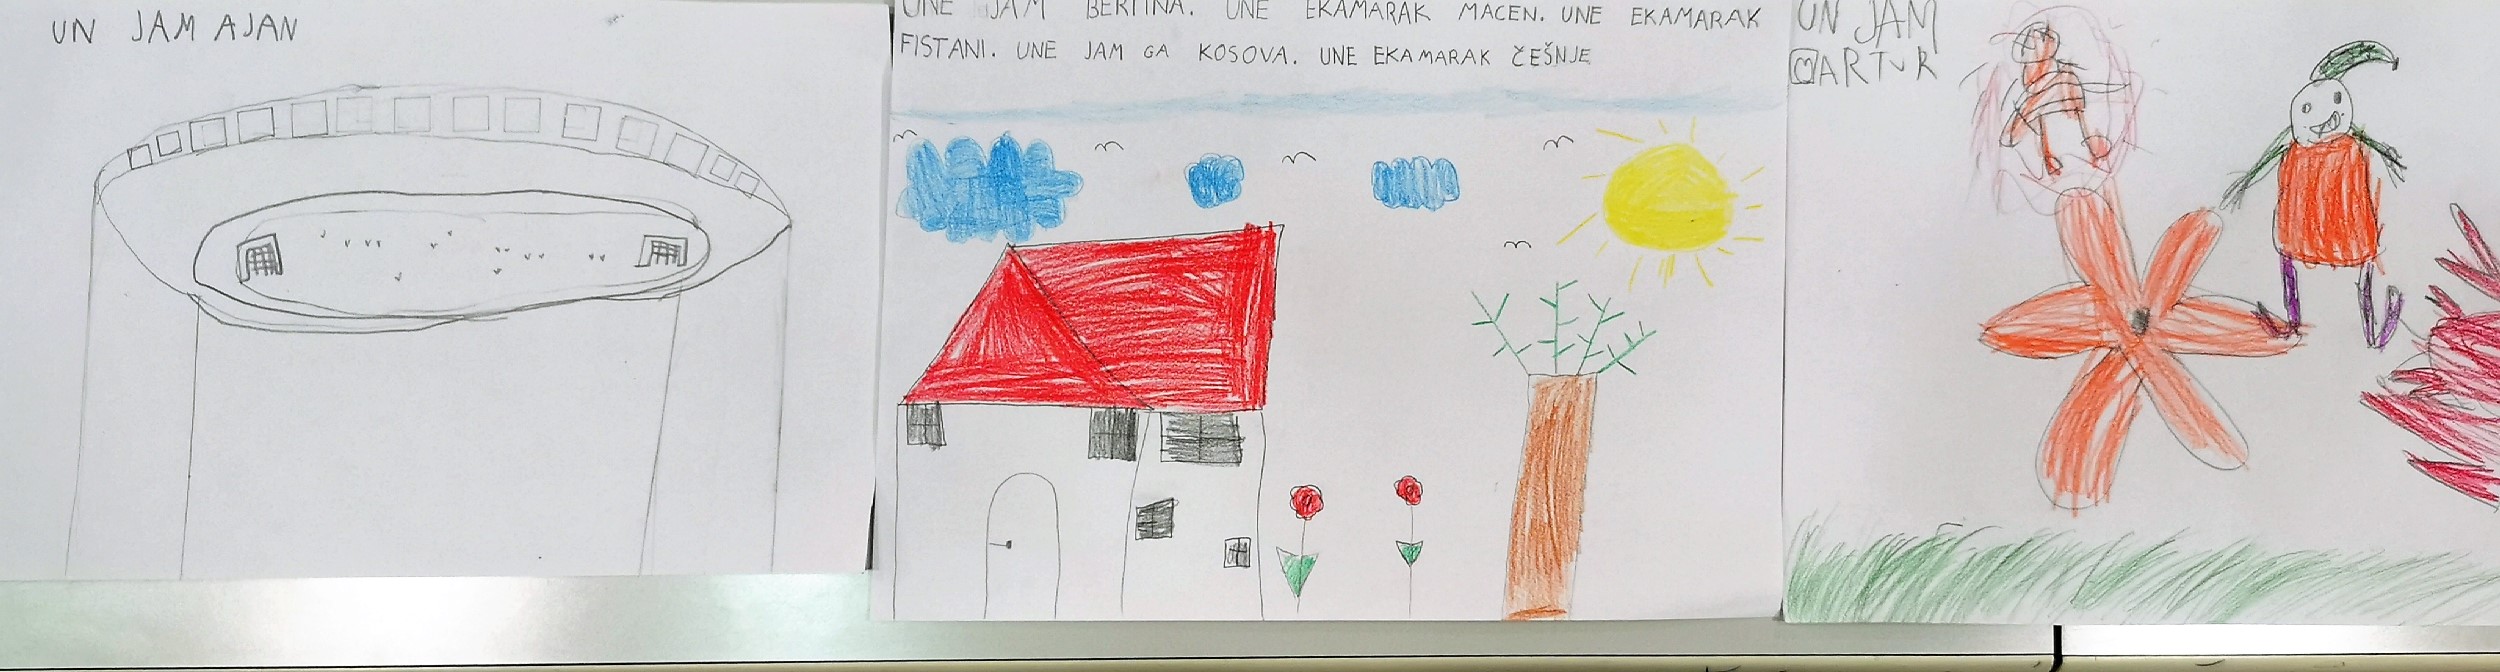 UN JAM AJAN
UNE JAM BERTINA. UNE EKAMARAK MACEN. UNE EKAMARAK
FISTANI. UNE JAM GA KOSOVA. UNE EKAMARAK ČEŠNJE
UN JAM
ARTUR